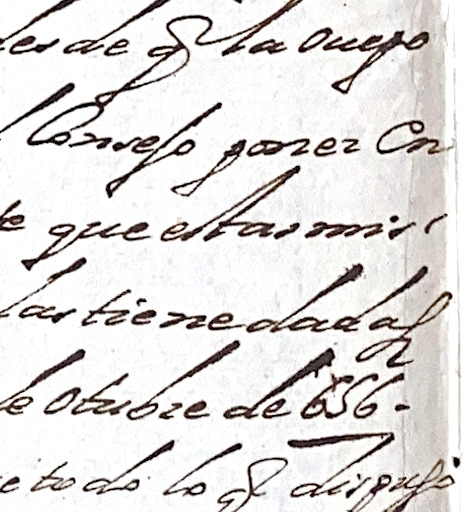 desde q la ouepo
Consejo poner en
te que estas mis
las tiene dadas
de Otubre de 656 -
e todo lo q dispuso